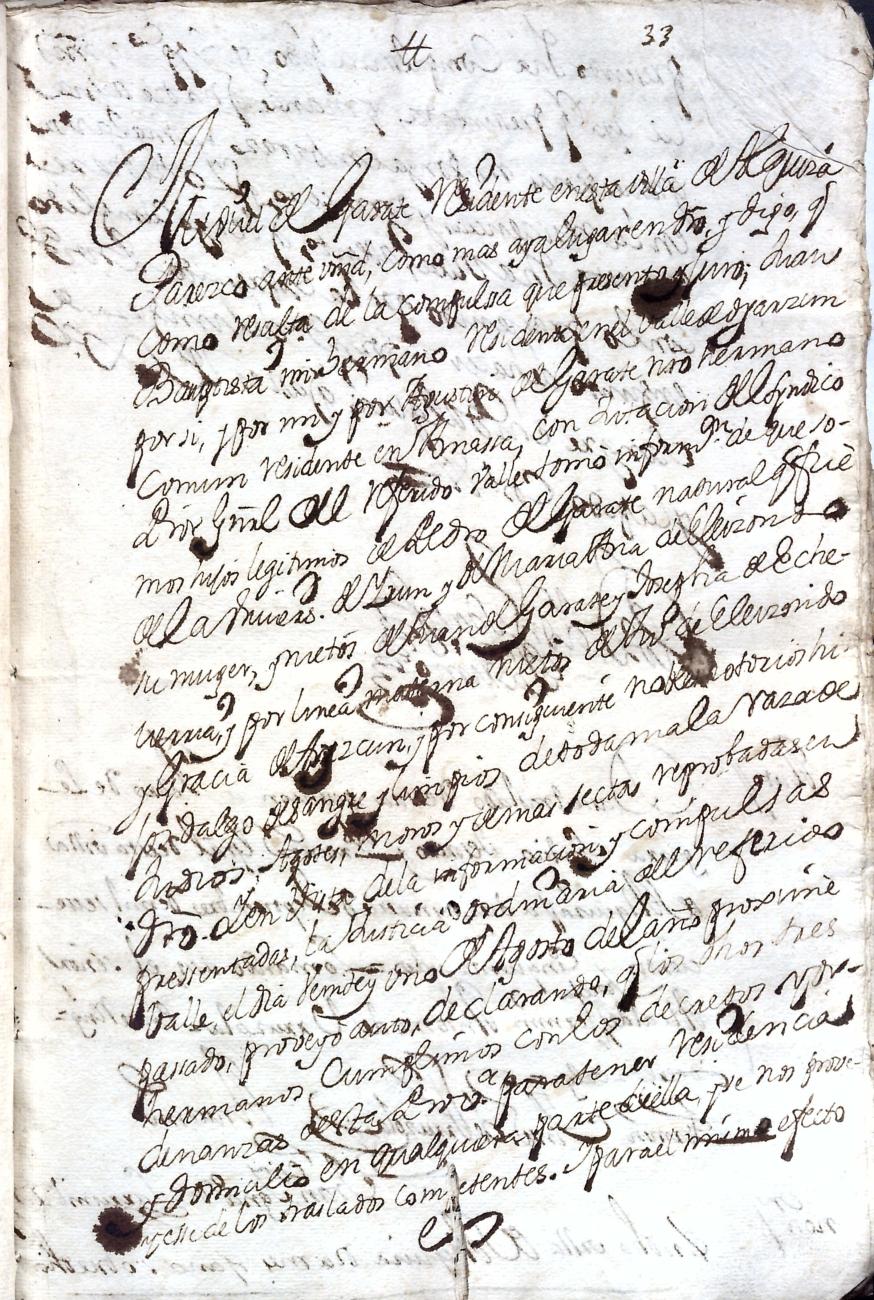 33
Miguel de Garate Residente en esta villa de Alquiza
Parezco ante vmd, como mas aya lugar en dro, y digo, q
como resulta de la compulsa que presento y juro, Juan
Bauptista mi hermano residente en el Valle de oyarzun
por si, y por mi y por Agustin de Garate nro hermano
Comun residente en Amassa, con citacion del Syndico
Pror Gñral del referido Valle tomò informon de que so-
mos hijos legitimos de Pedro de Garate natural q fuè
de la Univers. de Yrun y de Maria Antta de Eleizondo
su muger, y nietos de Juan de Garate y Josepha de Eche-
verria, y por linea materna nietos de de Eleizondo
y Gracia de y por consiguiente nobles notorios hi-
jos dalgo de sangre y limpios de toda mala raza de
Judios, Agotes, moros y demas sectas reprobadas en
dro. Y en vista de la informacion, y compulsas
pressentadas, la Justicia ordinaria del referido
Valle, el dia veinte y uno de Agosto del año proximè
passado, proveyò auto, declarando, q los dhos tres
hermanos cumplimos con los decretos y or-
denanzas de esta Prova para tener residencia
y domicilio en qualquiera parte de ella, y se nos prove-
yesse de los traslados competentes. Y para el mismo efecto